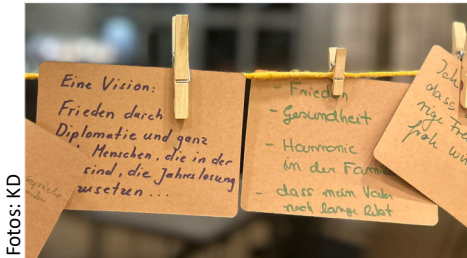 Eine Vision:
Frieden durch
Diplomatie und ganz
Menschen, die in der
sind, die Jahreslosung
zusetzen ...
- Frieden
- Gesundheit
- Harmonie
in der Familie
- dass mein Vater
noch lange lebt
Ich
dass
rige
froh
Fotos: KD